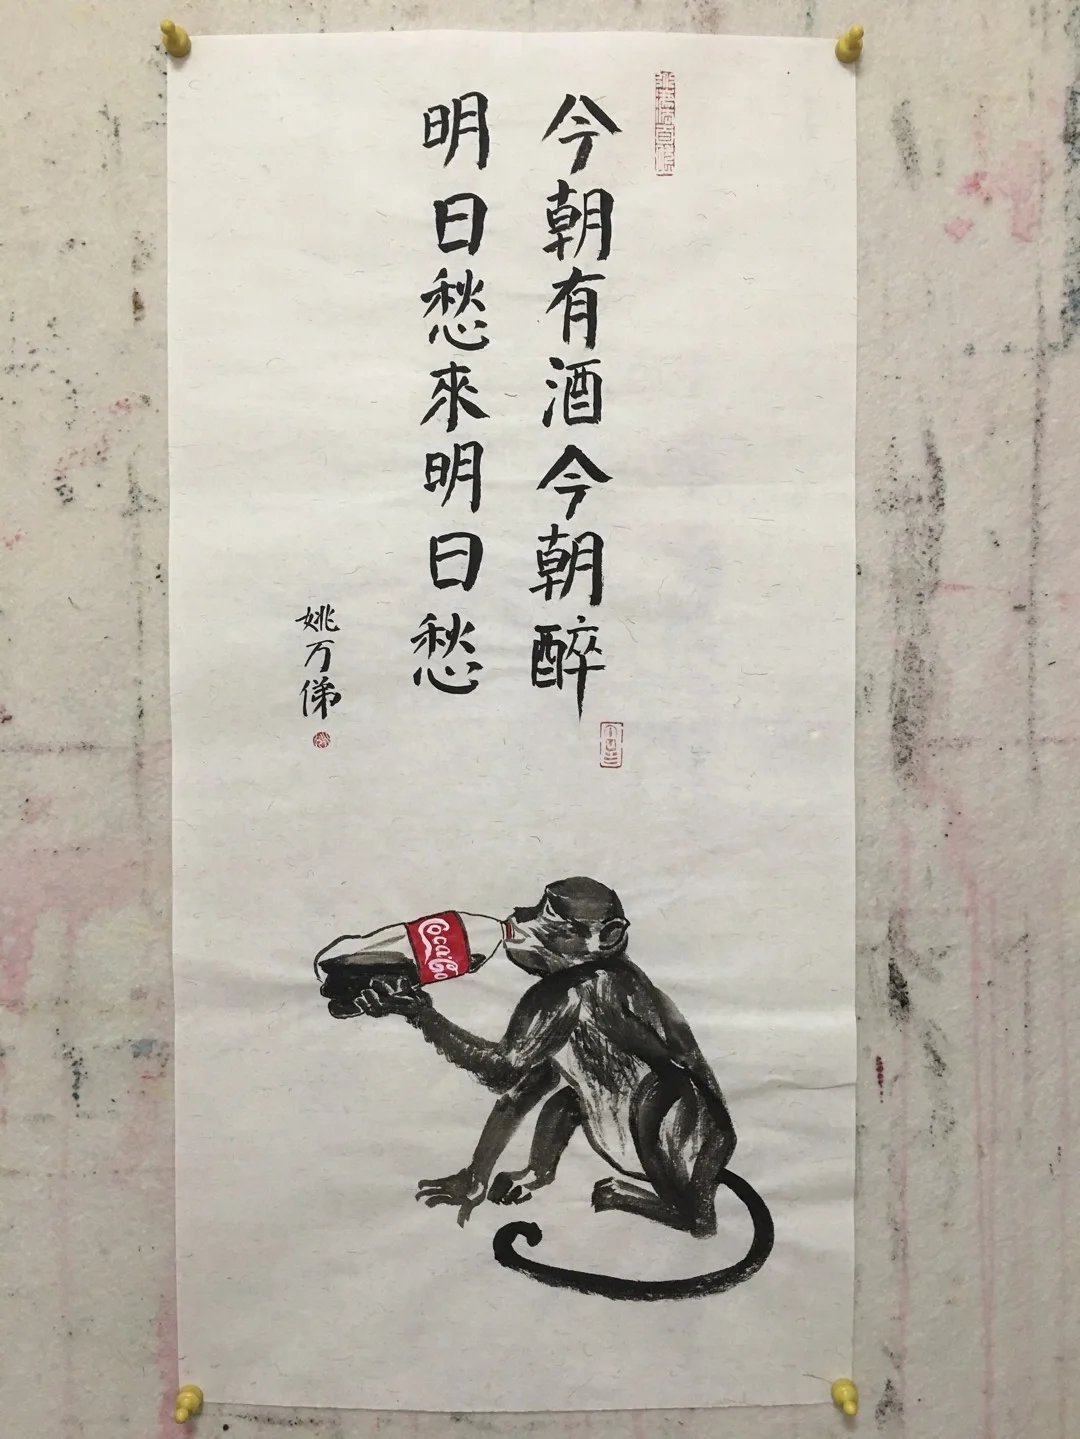 今朝有酒今朝醉
明日愁來明日愁
姚万俤
Coca-Co